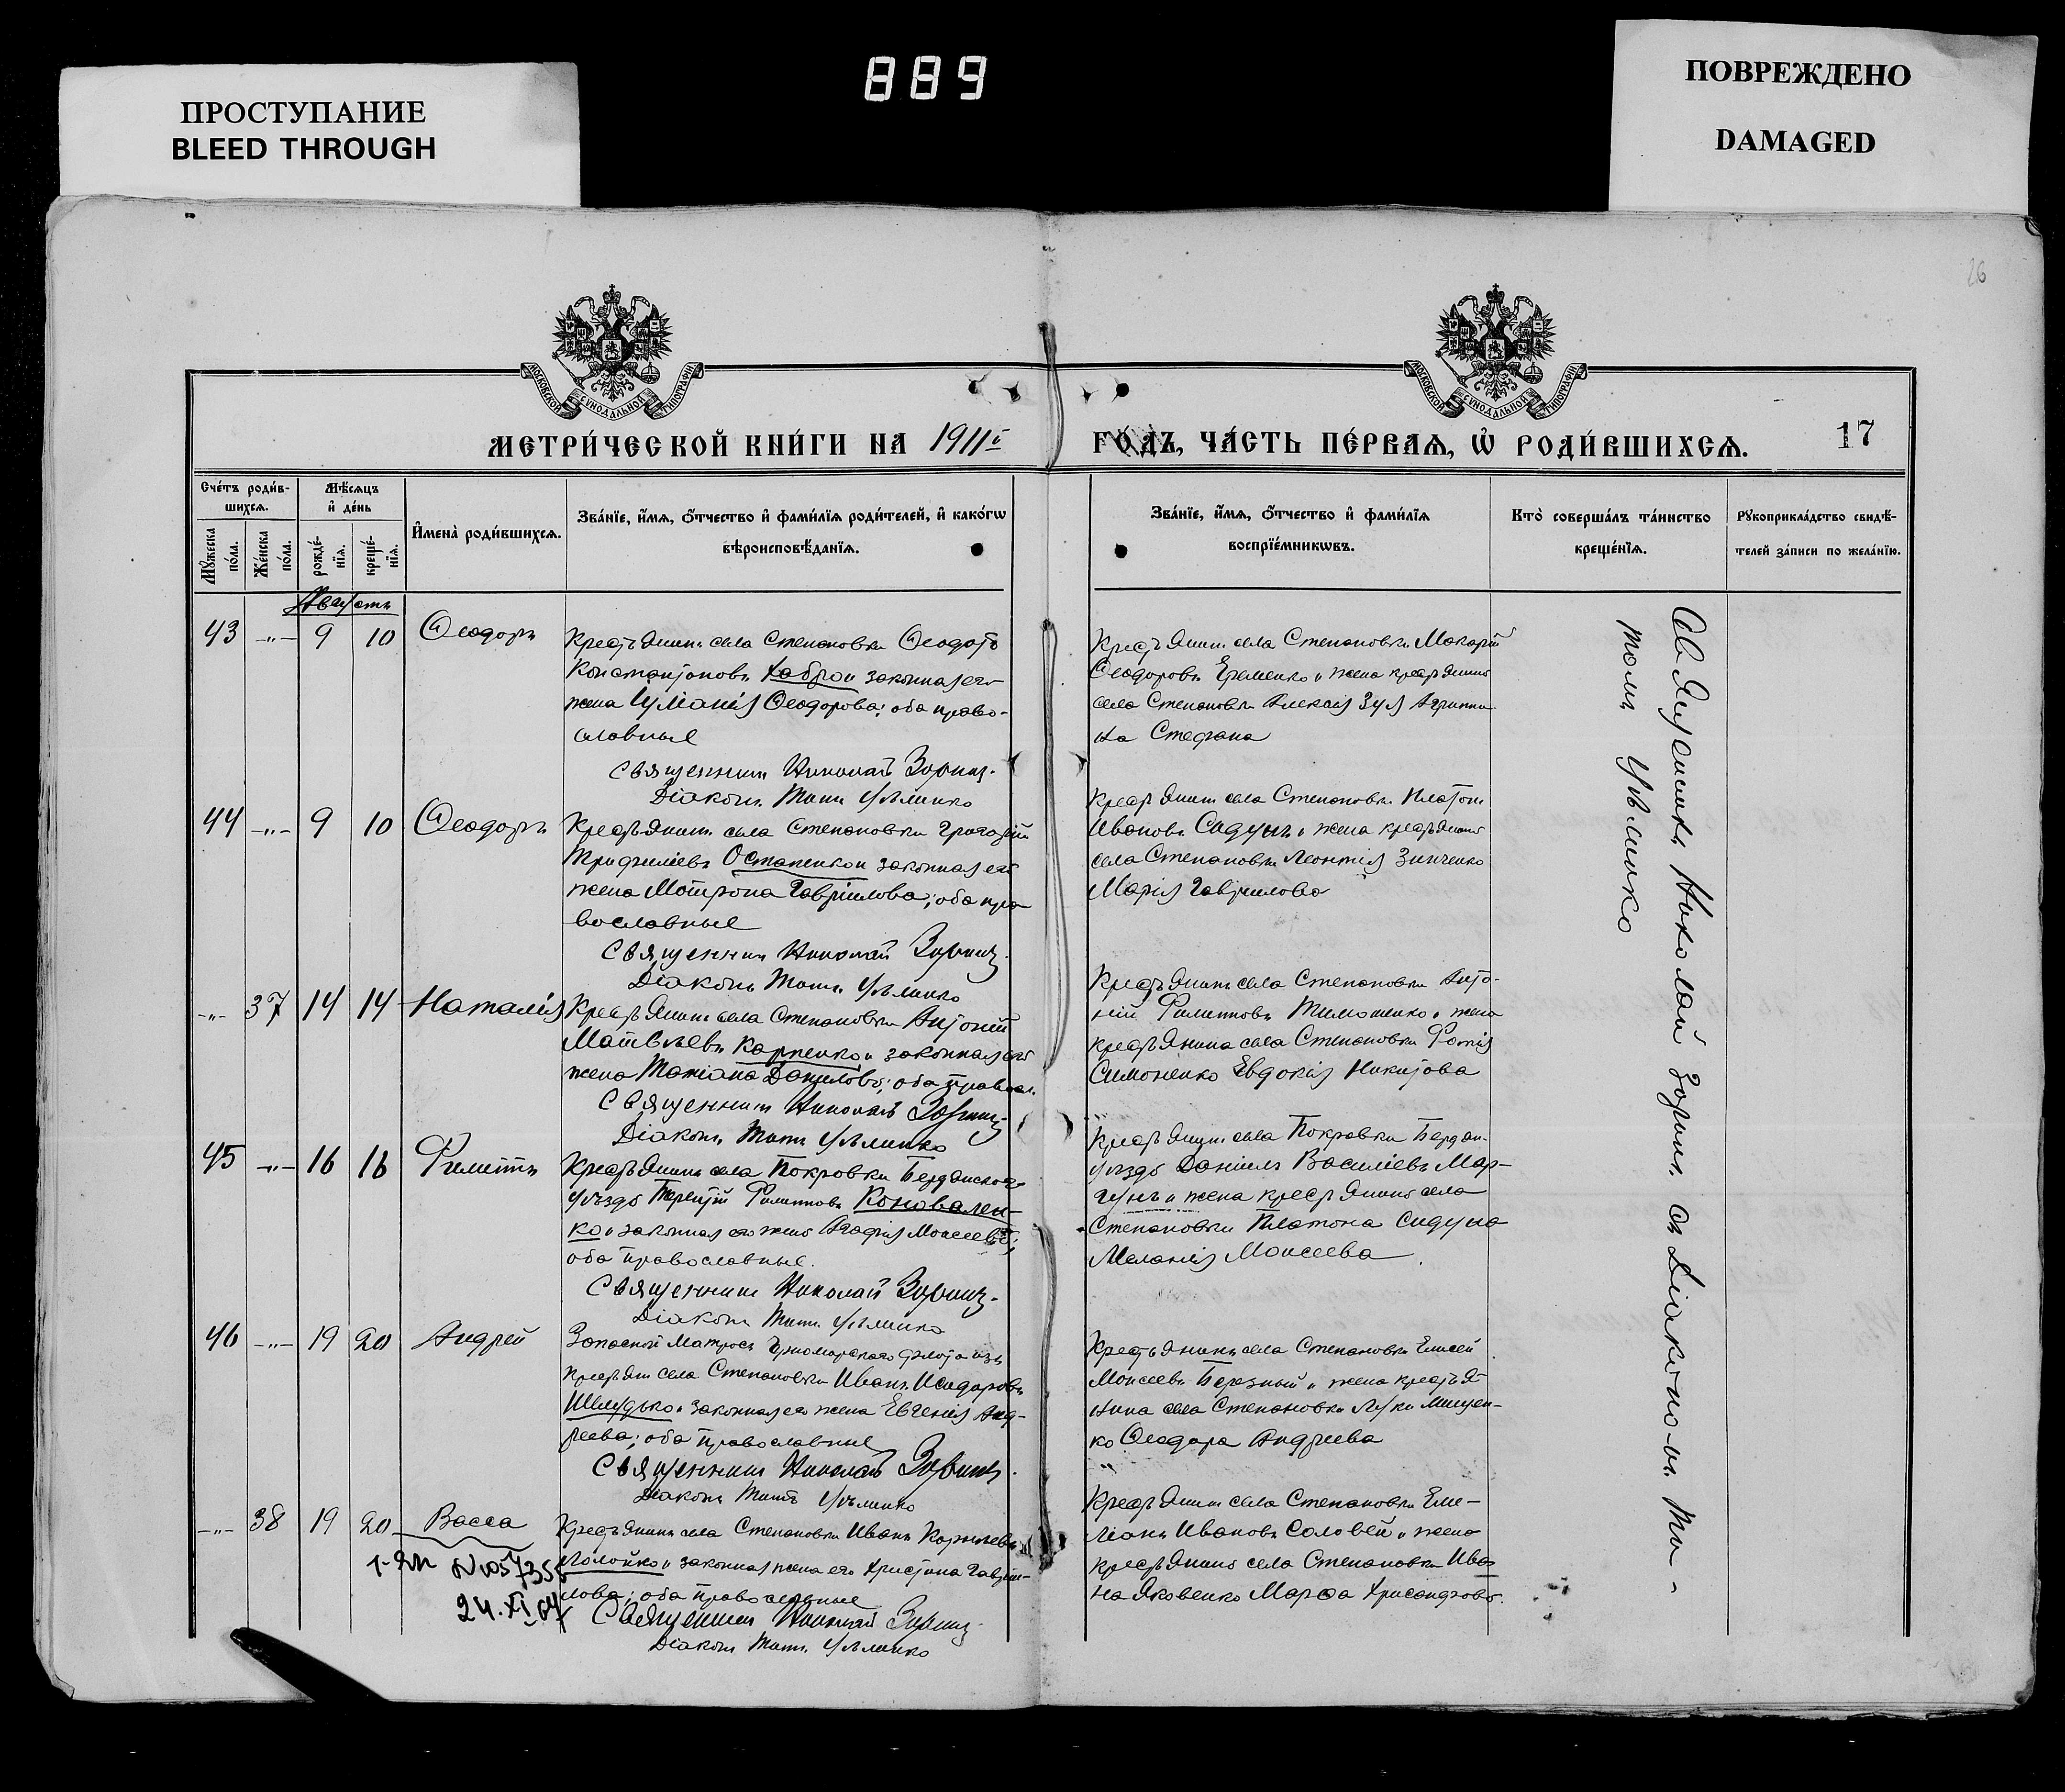 889
ПРОСТУПАНИЕ
BLEED THROUGH
ПОВРЕЖДЕНО
DAMAGED
26
МОСКОВСКОЙ СУНОДАЛЬНОЙ ТИПОГРАФІИ
МОСКОВСКОЙ СУНОДАЛЬНОЙ ТИПОГРАФІИ
МЕТРИ́ЧЕСКОЙ КНИ́ГИ НА 1911й ГО́ДЪ, ЧА́СТЬ ПЕ́РВАѦ, Ѽ РОДИ́ВШИХСѦ.
17
Сче́тъ роди́в-
шихсѧ.
Мꙋ́жеска по́ла.
Же́нска по́ла.
Мѣ́сѧцъ
и҆ де́нь
рожде́-
нїѧ.
креще́-
нїѧ.
И҆мена̀ роди́вшихсѧ.
Зва́нїе, и҆́мѧ, ѻ҆́тчество и҆ фами́лїѧ роди́телей, и҆ како́гѡ
вѣроисповѣ́данїѧ.
Зва́нїе, и҆́мѧ, ѻ҆́тчество и҆ фами́лїѧ
воспрїе́мникѡвъ.
Кто̀ соверша́лъ та́инство
креще́нїѧ.
Рꙋкоприкла́дство свидѣ́-
телей за́писи по жела́нїю.
Августъ
43 -"- 9 10 Ѳеодоръ
Крестьянинъ села Степановки Ѳеодотъ
Константиновъ и законная его
жена Ѳеодорова; оба право-
славные
Священникъ Николай
Діаконъ Титъ
Крестьянинъ села Степановки Макарій
Ѳеодоровъ Еременко и жена крестьянина
села Степановки Алексія Агриппи-
на
44 -"- 9 10 Ѳеодоръ
Крестьянинъ села Степановки Григорій
Трифиліевъ Остапенко и законная его
жена Мотрона Гавріилова; оба пра
вославные
Священникъ Николай
Діаконъ Титъ
Крестьянинъ села Степановки Платонъ
Ивановъ Сидунъ и жена крестьянина
села Степановки Леонтія Зинченко
Марія Гавріилова
-"- 37 14 14 Наталія
Крестьянинъ села Степановки Антоній
Матвѣевъ Карпенко и законная его
жена Татіана Данилова; оба правосл.
Священникъ Николай
Діаконъ Титъ
Крестьянинъ села Степановки Анто-
ній Филипповъ Тимошенко и жена
крестьянина села Степановки
Симоненко Евдокія Никитова
45 -"- 16 16 Филиппъ
Крестьянинъ села Покровки Бердянскаго
уѣзда Терентій Филипповъ Коновален-
ко и законная его жена Агафія Моисеева;
оба православные.
Священникъ Николай
Діаконъ Титъ
Крестьянинъ села Покровки Бердян.
уѣзда Даніилъ Василіевъ Мар-
гунъ и жена крестьянина села
Степановки Платона Сидуна
Меланія Моисеева
46 -"- 19 20 Андрей
Запасной Матросъ Черноморскаго флота изъ
крестьян села Степановки Иванъ Исидоровъ
и законная его жена Евгенія Анд-
реева; оба православные
Священникъ Николай
Діаконъ Титъ
Крестьянинъ села Степановки Елисей
Моисеевъ Березный и жена крестья-
нина села Степановки Луки Мищен-
ко Ѳеодора Андреева
-"- 38 19 20 Васса
Крестьянинъ села Степановки Иванъ
и законная жена его Христина Гавріи-
лова; оба православные
Священникъ Николай
Діаконъ Титъ
Крестьянинъ села Степановки Еме-
ліанъ Ивановъ Соловей и жена
крестьянина села Степановки Ива-
на Яковенко Марѳа Хрисанфова.
24.XI 64
Священникъ Николай съ Діакономъ Ти-
томъ